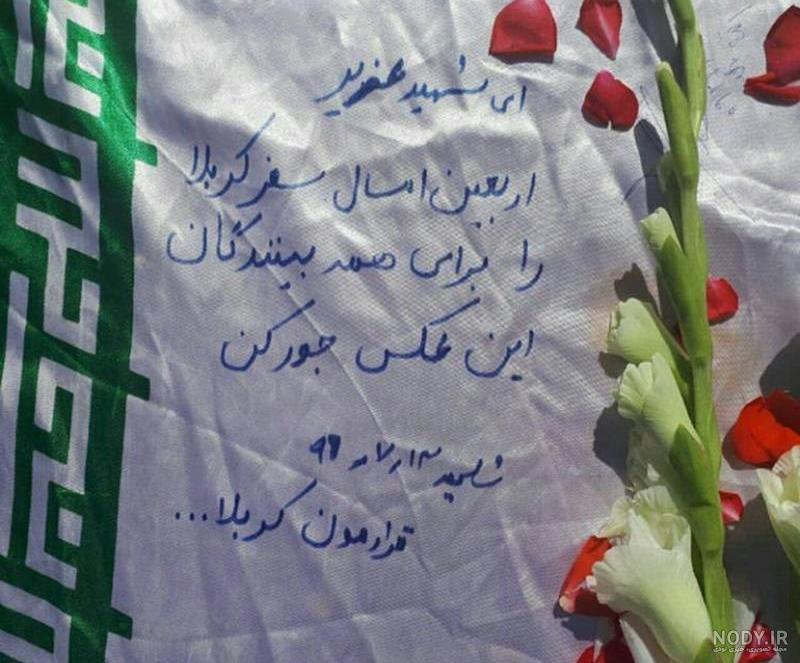 ای شهید عزیز
اربعین امسال سفر کربلا
را برای همه بینندگان
این عکس جور کن
قرارمون کربلا...
NODY.IR
مجله تصویری، خبری نودی